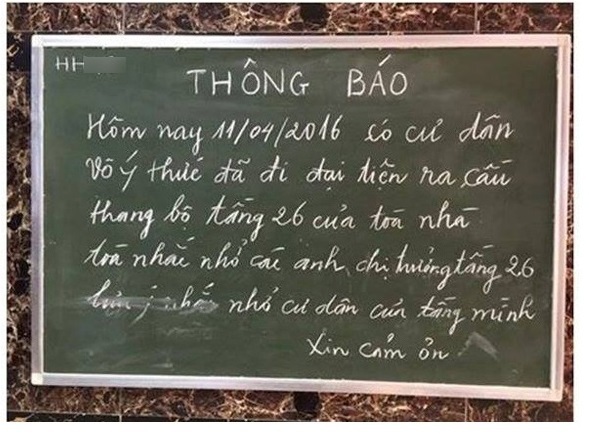 HH
THÔNG BÁO
Hôm nay 11/04/2016 có cư dân
Vô ý thức đã đi đại tiện ra cầu
thang bộ tầng 26 của toà nhà
toà nhắc nhở các anh, chị trưởng tầng 26
lưu ý nhắc nhở cư dân của tầng mình
Xin cảm ơn